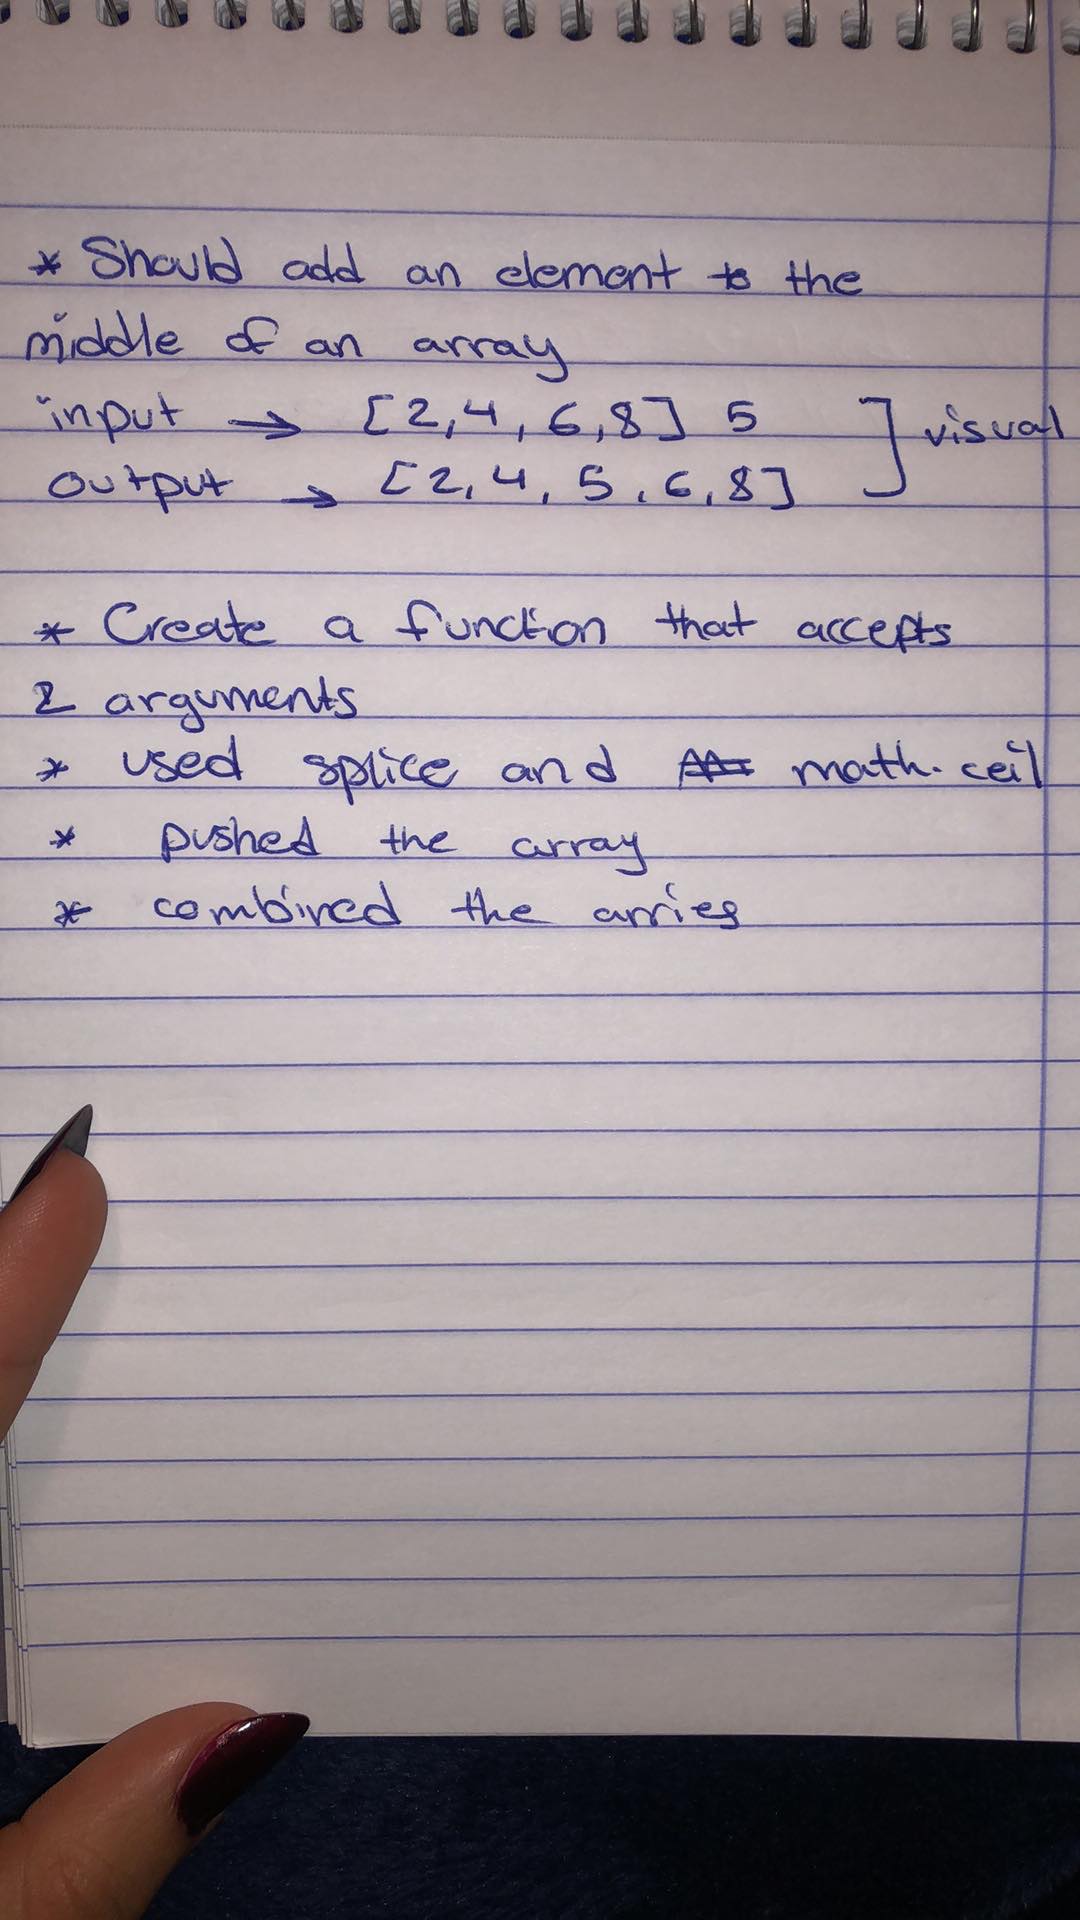 * Should add an element to the
middle of an array
input → [2,4,6,8] 5 ] visual
output → [2,4,5,6,8]
* Create a function that accepts
2 arguments
* used splice and math.ceil
* pushed the array
* combined the arries